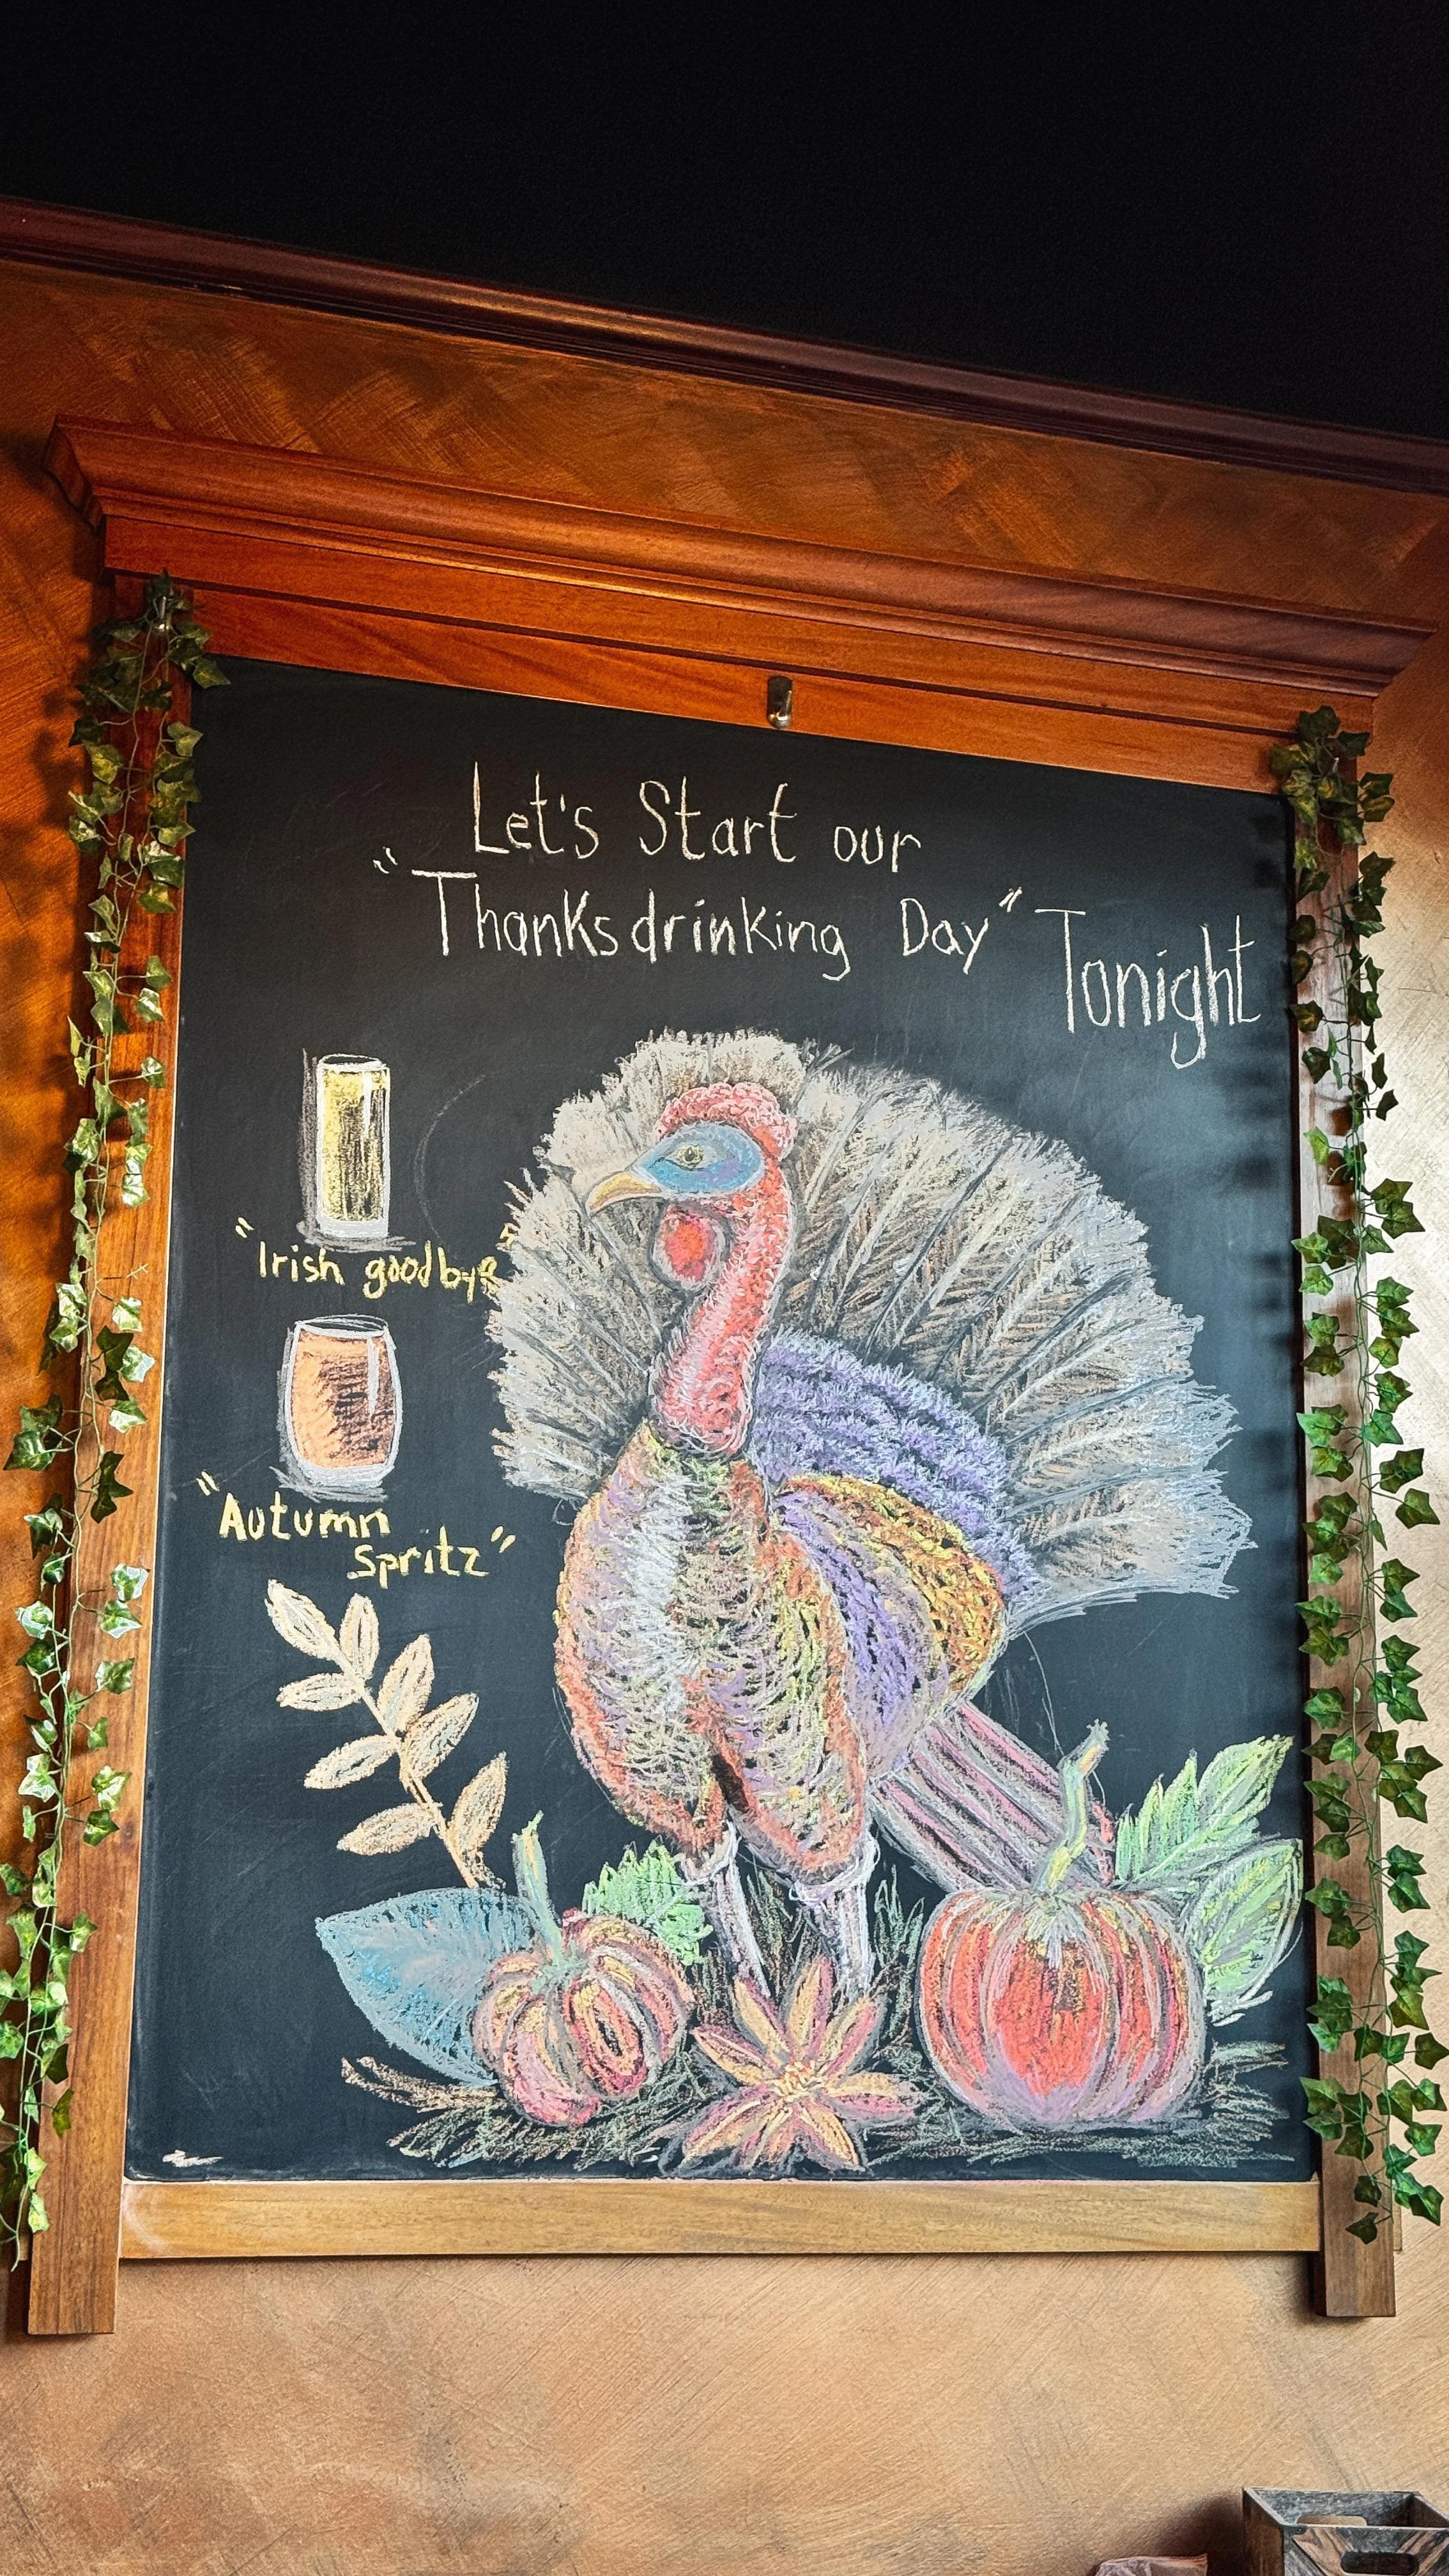 Let's Start our
"Thanksdrinking Day" Tonight
"Irish goodbye"
"Autumn
Spritz"